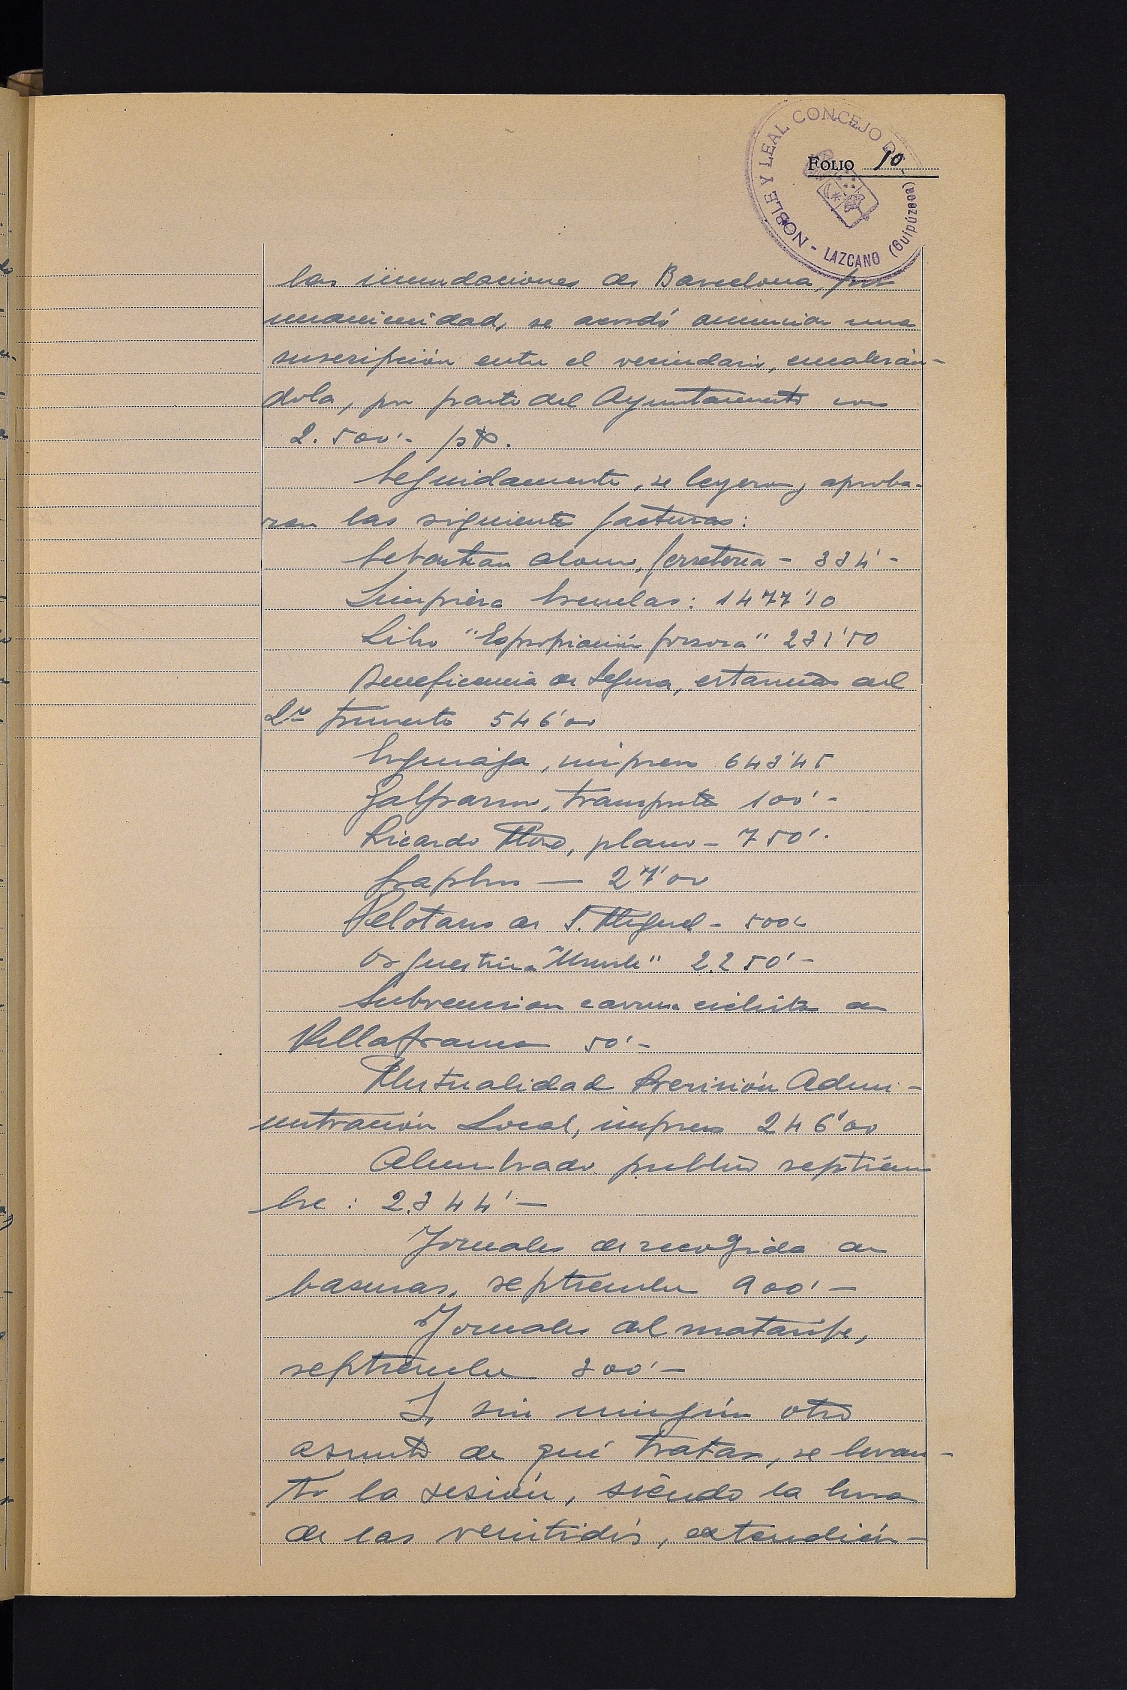 NOBLE Y LEAL CONCEJO DE - LAZCANO (Guipúzcoa)
FOLIO 10
las inundaciones de Barcelona, por
unanimidad, se acordó anunciar una
suscripción entre el vecindario, encabezán-
dola, por parte del Ayuntamiento con
2.500'- pts.
Seguidamente, se leyeron y aproba-
ron las siguiente facturas:
Sebastian ferretería - 334'-
Limpieza Escuelas: 1477'10
Libro "Expropiación forzosa" 231'50
Beneficencia de Segura, estancias del
2º trimestre 546'00
impresos 643'45
transporte 100'-
Ricardo plano - 750'-
27'00
Pelotaris de S. Miguel - 500'-
Orquestina 2250'-
Subvencion carrera ciclista de
Villafranca 50'-
Mutualidad Previsión Admi-
nistración Local, impreso 246'00
Alumbrado publico septiem
bre: 2344'-
Jornales de recogida de
basuras, septiembre 900'-
Jornales del matarife,
septiembre 300'-
Y, sin ningún otro
asunto de qué tratar, se levan-
to la sesión, siendo la hora
de las veintidós, extendién-